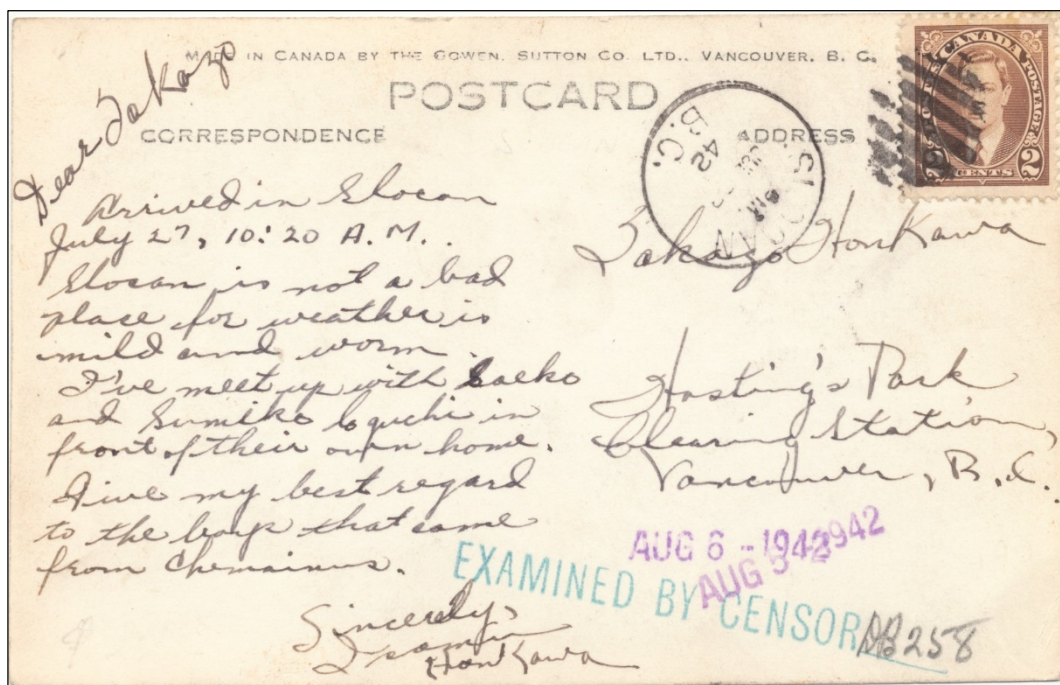 MADE IN CANADA BY THE GOWEN, SUTTON CO. LTD., VANCOUVER, B. C.
POSTCARD
CORRESPONDENCE
ADDRESS
CANADA POSTAGE
2 CENTS 2
SLOCAN
42
B.C.
Dear Takazo
Arrived in Slocan
July 27, 10:20 A.M..
Slocan is not a bad
place for weather is
mild and worm
I've meet up with Saeko
and Sumiko Eguchi in
front of their own home.
Give my best regard
to the boys that came
from Chemainus.
Sincerely,
Honkawa
Takazo Honkawa
Hasting's Park
Clearing Station,
Vancouver, B.C.
AUG 6 - 1942
AUG 5 1942
EXAMINED BY CENSOR
DB258